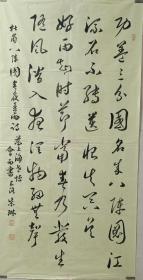 功蓋三分國名成八陣圖江
流石不轉遺恨失吞吴
好雨知時節當春乃發生
随風潜入夜潤物細無聲
杜甫八陣圖春夜喜雨詩
上海朱琳